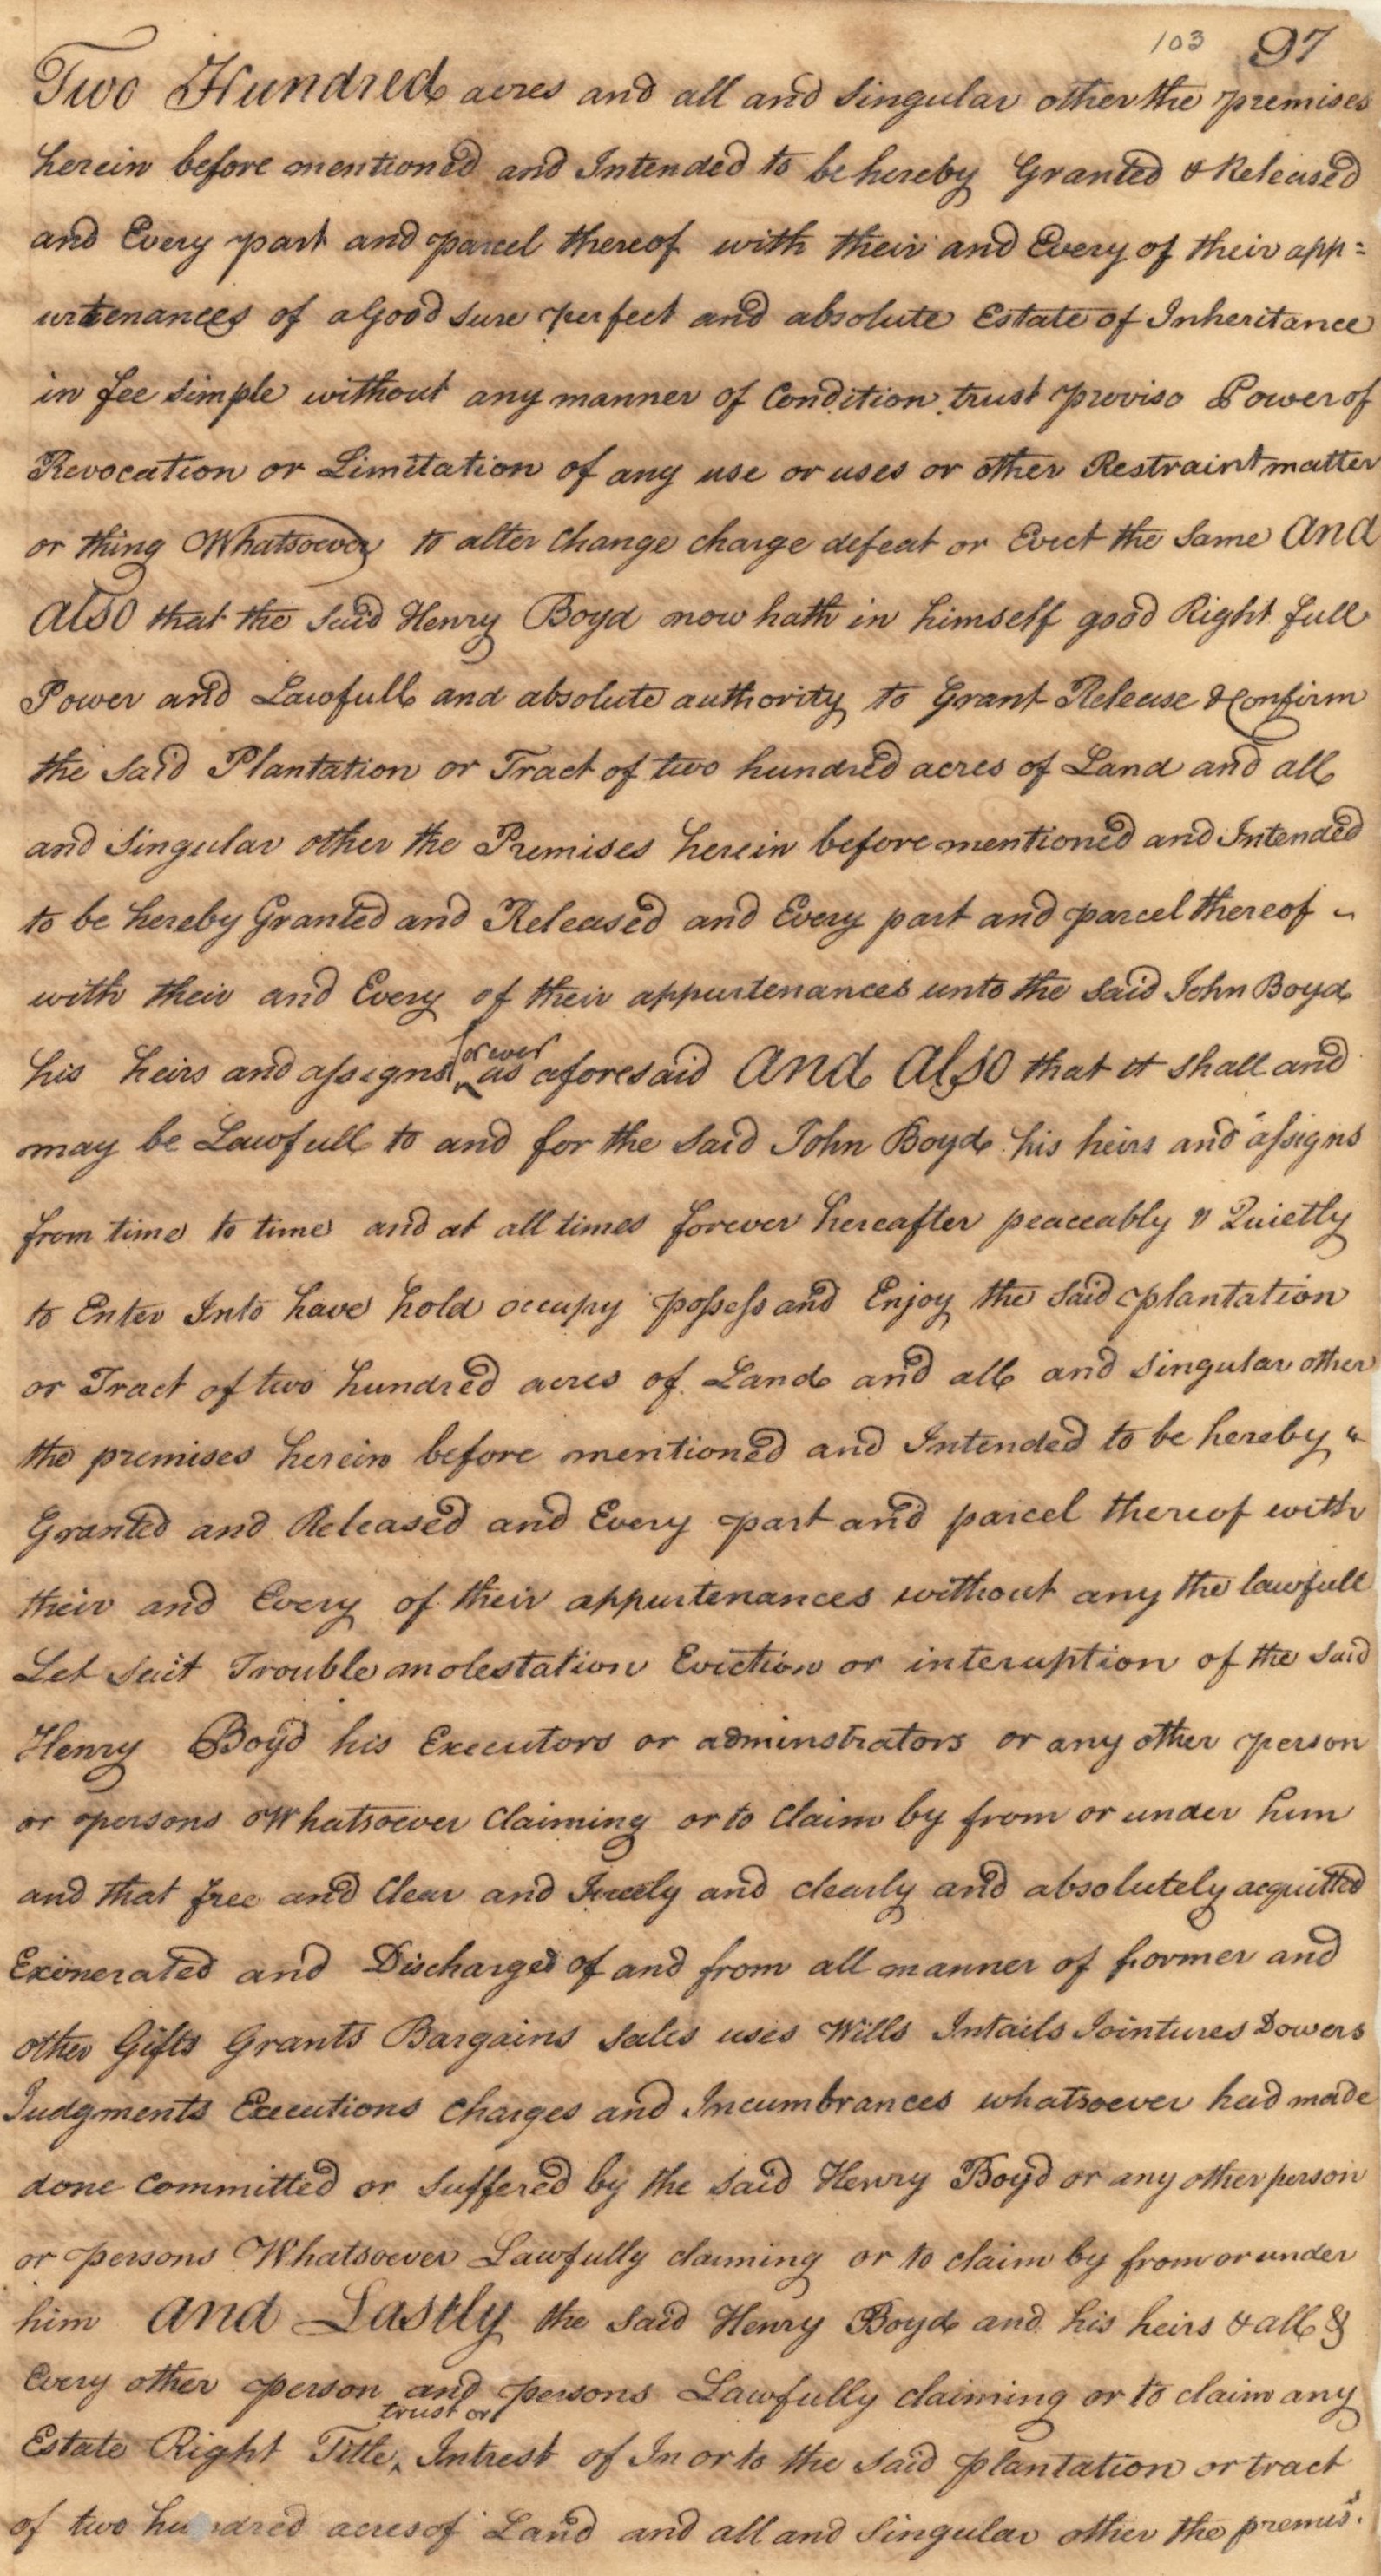 103 97
Two Hundred acres and all and Singular other the premises
herein before mentioned and Intended to be hereby Granted & Released
and Every part and parcel thereof with their and Every of their app=
urtenances of a Good Sure perfect and absolute Estate of Inheritance
in fee simple without any manner of Condition trust proviso Power of
Revocation or Limitation of any use or uses or other Restraint matter
or thing Whatsoever to alter Change charge defeat or Evict the Same And
Also that the Said Henry Boyd now hath in himself good Right full
Power and Lawfull and absolute authority to Grant Release & Confirm
the Said Plantation or Tract of two hundred acres of Land and all
and Singular other the Premises herein before mentioned and Intended
to be hereby Granted and Released and Every part and parcel thereof
with their and Every of their appurtenances unto the Said John Boyd
his heirs and assigns forever as aforesaid And Also that it Shall and
may be Lawfull to and for the Said John Boyd his heirs and assigns
from time to time and at all times forever hereafter peaceably & Quietly
to Enter Into have hold occupy possess and Enjoy the Said plantation
or Tract of two hundred acres of Land and all and Singular other
the premises herein before mentioned and Intended to be hereby
Granted and Released and Every part and parcel thereof with
their and Every of their appurtenances without any the lawfull
Let Suit Trouble molestation Eviction or interuption of the Said
Henry Boyd his Executors or adminstrators or any other person
or persons Whatsoever Claiming or to Claim by from or under him
and that free and Clear and freely and clearly and absolutely acquitted
Exonerated and Discharged of and from all manner of former and
other Gifts Grants Bargains Sales uses Wills Intails Jointures Dowers
Judgments Executions Charges and Incumbrances whatsoever had made
done Committed or Suffered by the Said Henry Boyd or any other person
or persons Whatsoever Lawfully claiming or to claim by from or under
him And Lastly the Said Henry Boyd and his heirs & all &
Every other person and persons Lawfully claiming or to claim any
Estate Right Title trust or Intrest of In or to the Said plantation or tract
of two hundred acres of Land and all and Singular other the premis.s